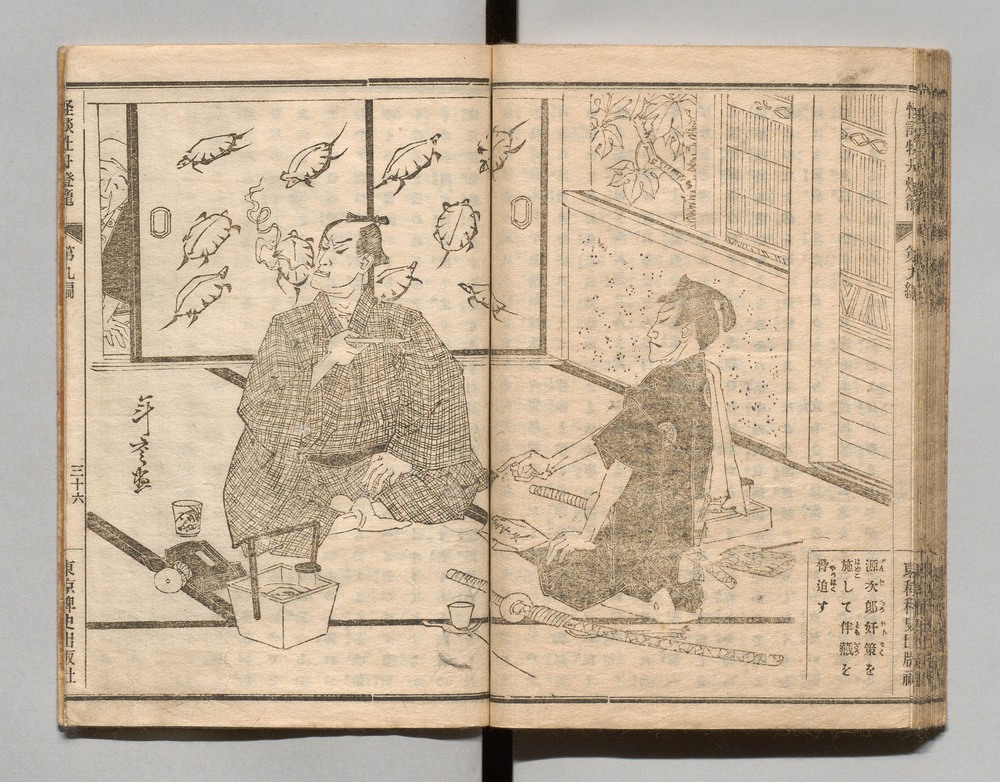 怪談牡丹燈籠
第九編
東京稗史出版社
源次郎奸策を
施して伴蔵を
脅迫す
怪談牡丹燈籠
第九編
三十六
東京稗史出版社